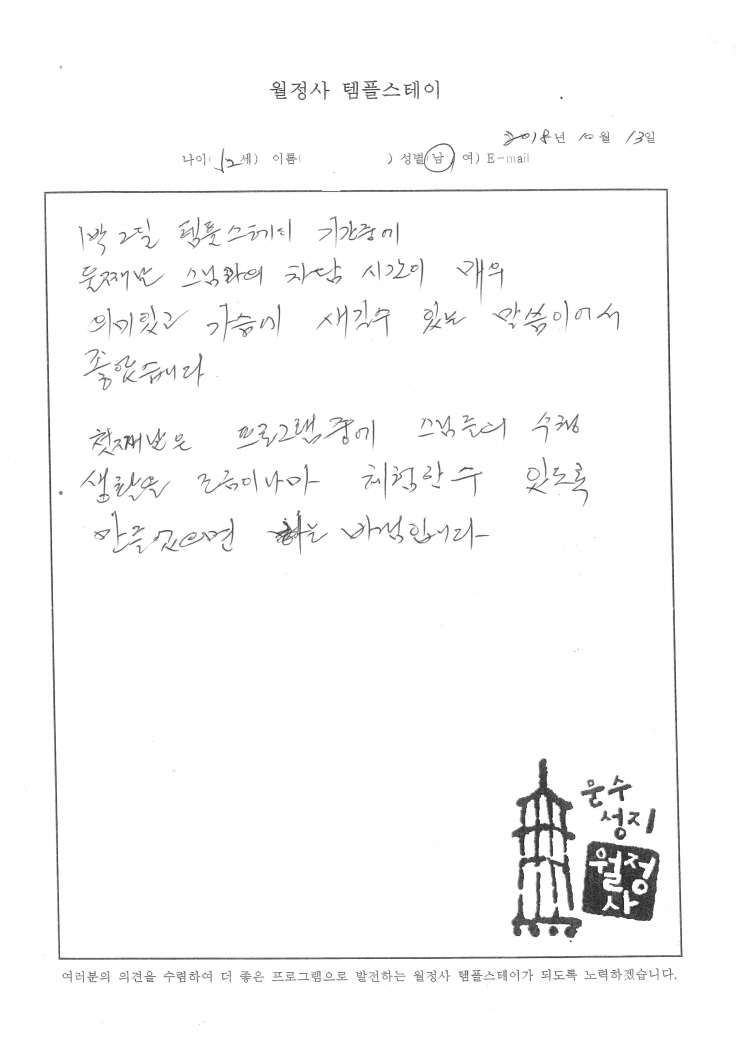 월정사 템플스테이
2018년 10월 13일
나이( 52세) 이름( ) 성별(남, 여) E-mail
1박 2일 템플스테이 기간중에
둘째날 스님과의 차담 시간이 매우
의미있고 가슴에 새길수 있는 말씀이어서
좋았습니다.
첫째날은 프로그램중에 스님들의 수행
생활을 조금이나마 체험할 수 있도록
만들었으면 하는 바램입니다
문수
성지
월정
사
여러분의 의견을 수렴하여 더 좋은 프로그램으로 발전하는 월정사 템플스테이가 되도록 노력하겠습니다.